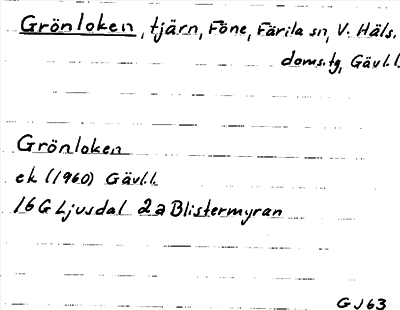 Grönloken, tjärn, Föne, Färila sn, V. Häls.
doms.tg, Gävl.l.
Grönloken
ek (1960) Gävl.l.
16G Ljusdal 2a Blistermyran
GJ63